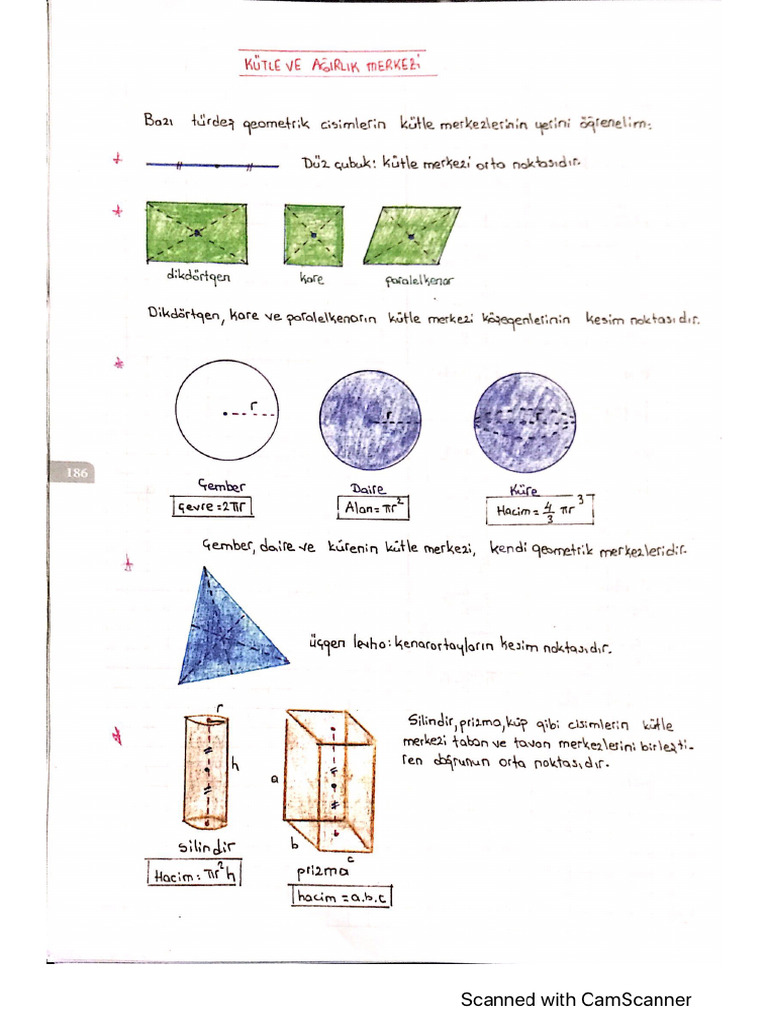 KÜTLE VE AĞIRLIK MERKEZİ
Bazı türdeş geometrik cisimlerin kütle merkezlerinin yerini öğrenelim:
Düz çubuk: kütle merkezi orta noktasıdır.
dikdörtgen kare paralelkenar
Dikdörtgen, kare ve paralelkenarın kütle merkezi köşegenlerinin kesim noktasıdır.
r r r
186
Çember Daire Küre
Çevre=2πr Alan=πr² Hacim=4/3 πr³
Çember, daire ve kürenin kütle merkezi, kendi geometrik merkezleridir.
üçgen levha: kenarortayların kesim noktasıdır.
r
Silindir, prizma, küp gibi cisimlerin kütle
merkezi taban ve tavan merkezlerini birleşti-
ren doğrunun orta noktasıdır.
h a
b c
silindir prizma
Hacim: πr²h hacim=a.b.c
Scanned with CamScanner